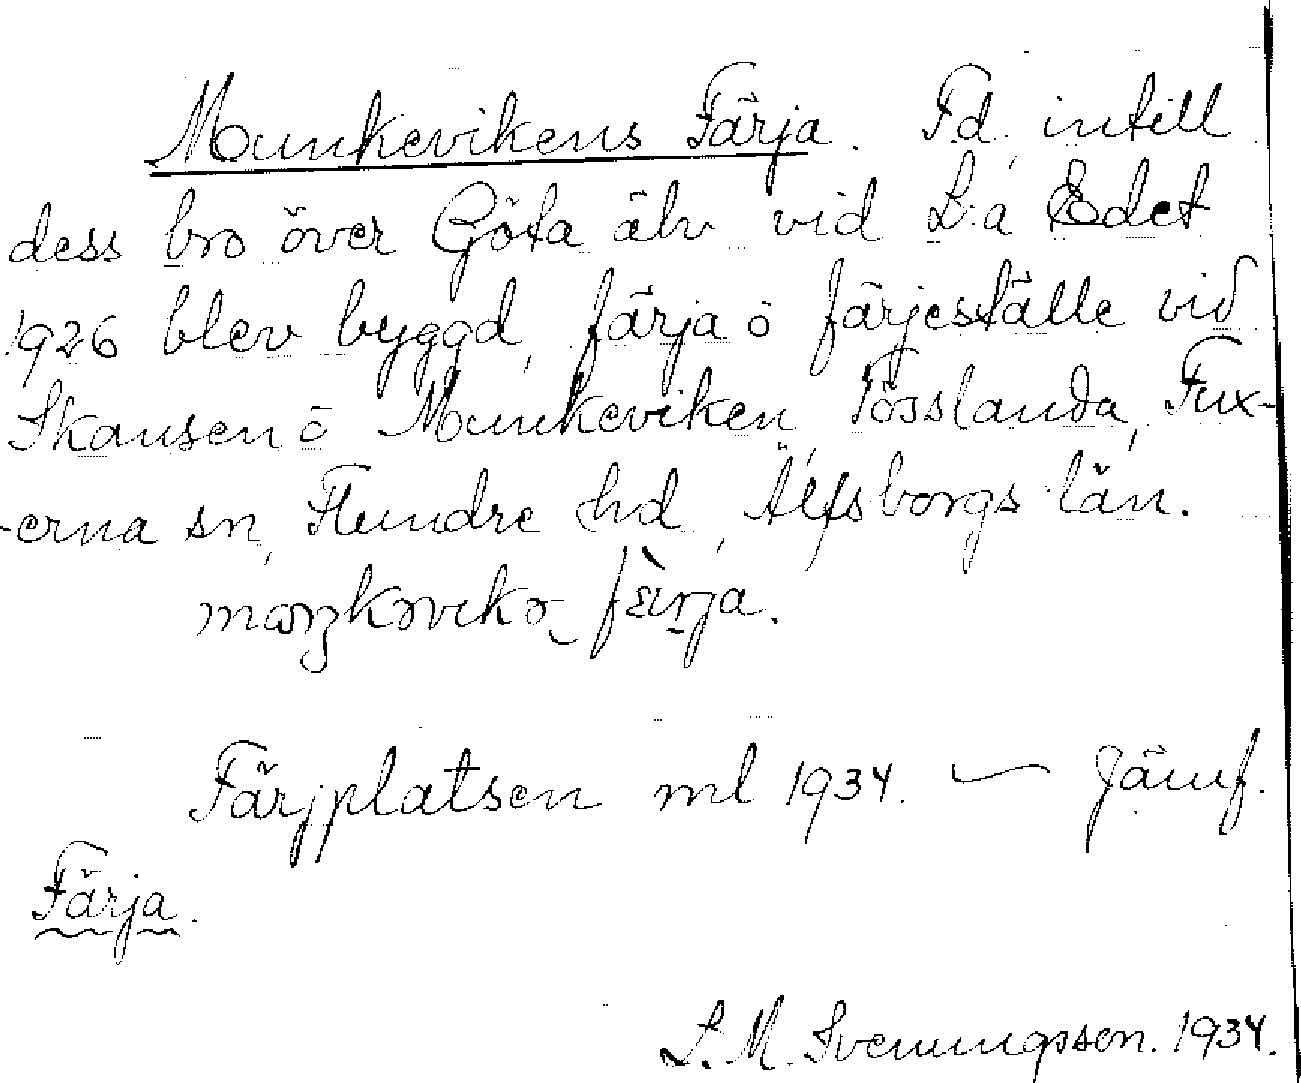 Munkevikens Färja. Fd. intill
dess bro över Göta älv vid L:a Edet
1926 blev byggd, färja o färjeställe vid
Skansen o Munkeviken, Tösslanda, Fux-
-erna sn, Flundre hd, Älfsborgs län.
färja.
Färjplatsen ml 1934. — Jämf.
Färja.
L. M. Svenungsson. 1934.